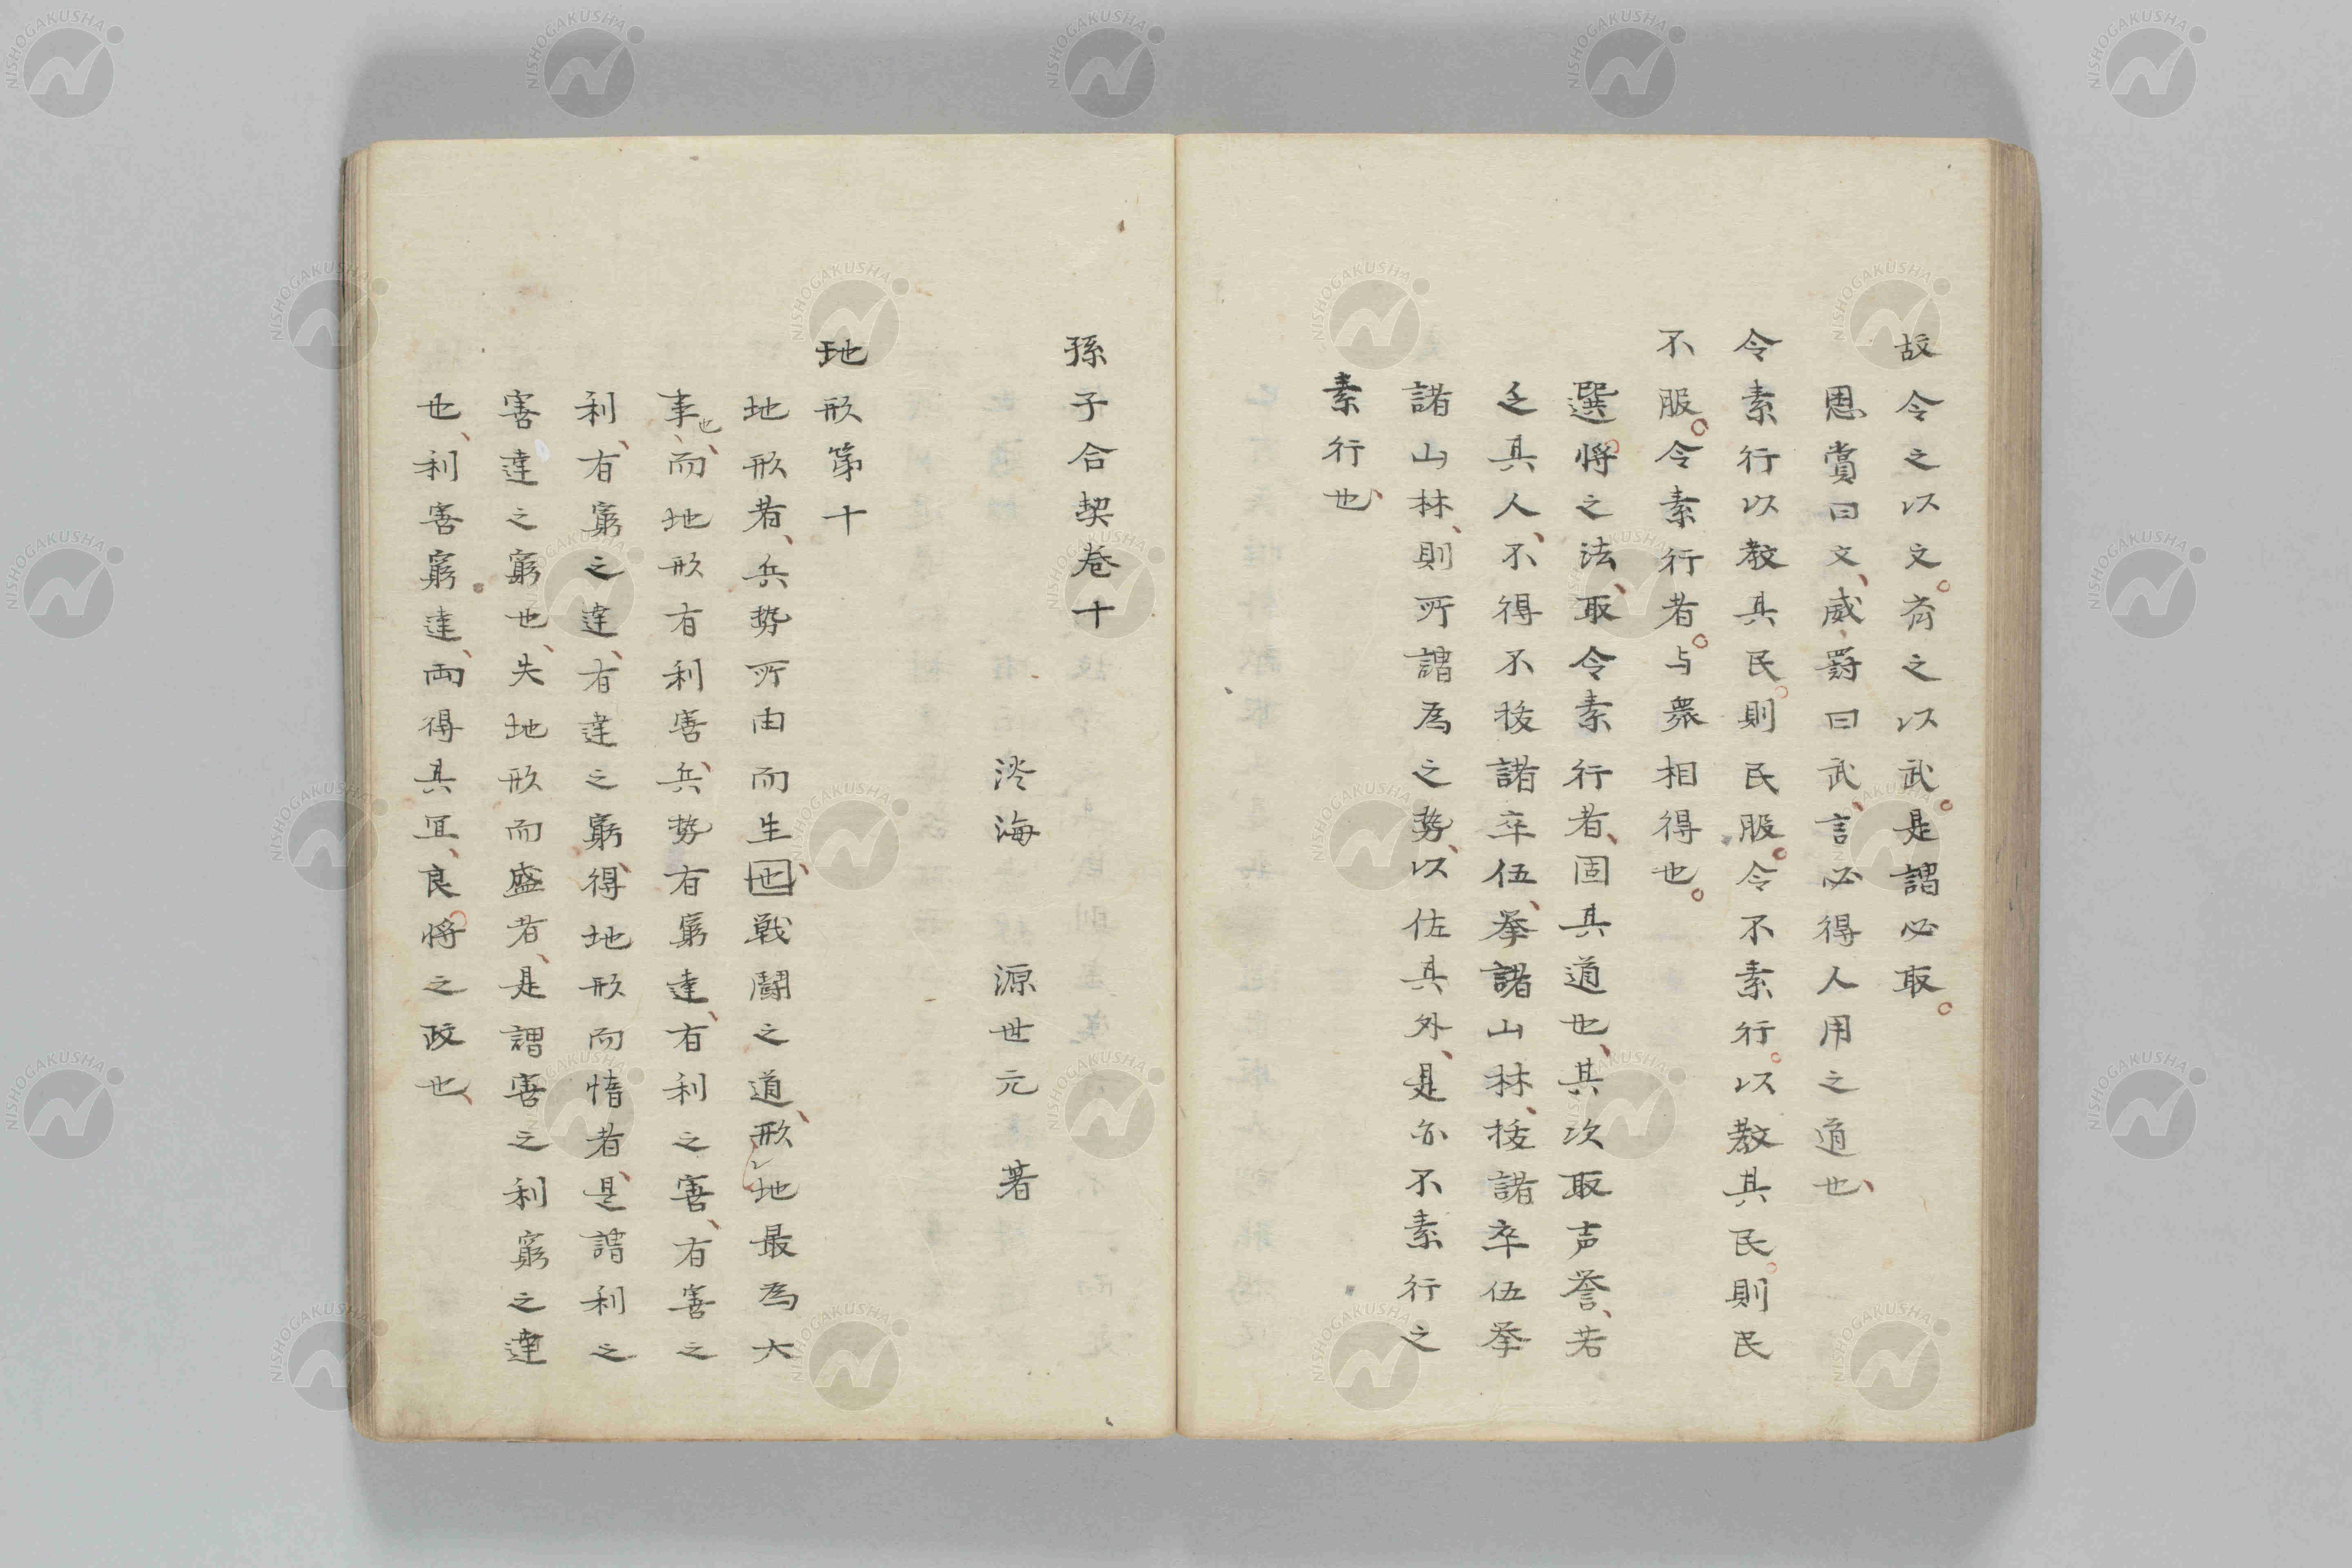 故令之以文。斉之以武。是謂必取。
恩賞曰文、威、罸曰武、言必得人用之道也、
令素行以教其民。則民服。令不素行。以教其民。則民
不服。令素行者。与衆相得也。
選将之法、取令素行者、固其道也、其次取声誉、若
乏其人、不得不抜諸卒伍、挙諸山林、抜諸卒伍挙
諸山林、則所謂為之勢、以佐其外、是亦不素行之
素行也、
孫子合契巻十
淡海 源世元 著
地形第十
地形者、兵勢所由而生也、戦鬪之道、形地最為大
事也、而地形有利害、兵勢有窮達、有利之害、有害之
利、有窮之達、有達之窮、得地形而惰者、是謂利之
害達之窮也、失地形而盛者、是謂害之利窮之達
也、利害窮達、両得其宜、良将之政也、
NISHOGAKUSHA